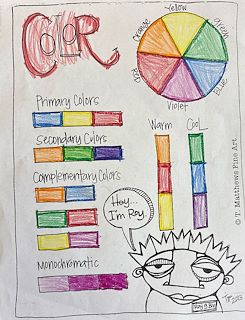 COLOR
Yellow
Orange
Green
Red
Blue
Violet
Primary Colors
Secondary Colors
Complementary Colors
Monochromatic
Warm
Cool
Hey...
I'm Roy
© T. Matthews Fine Art